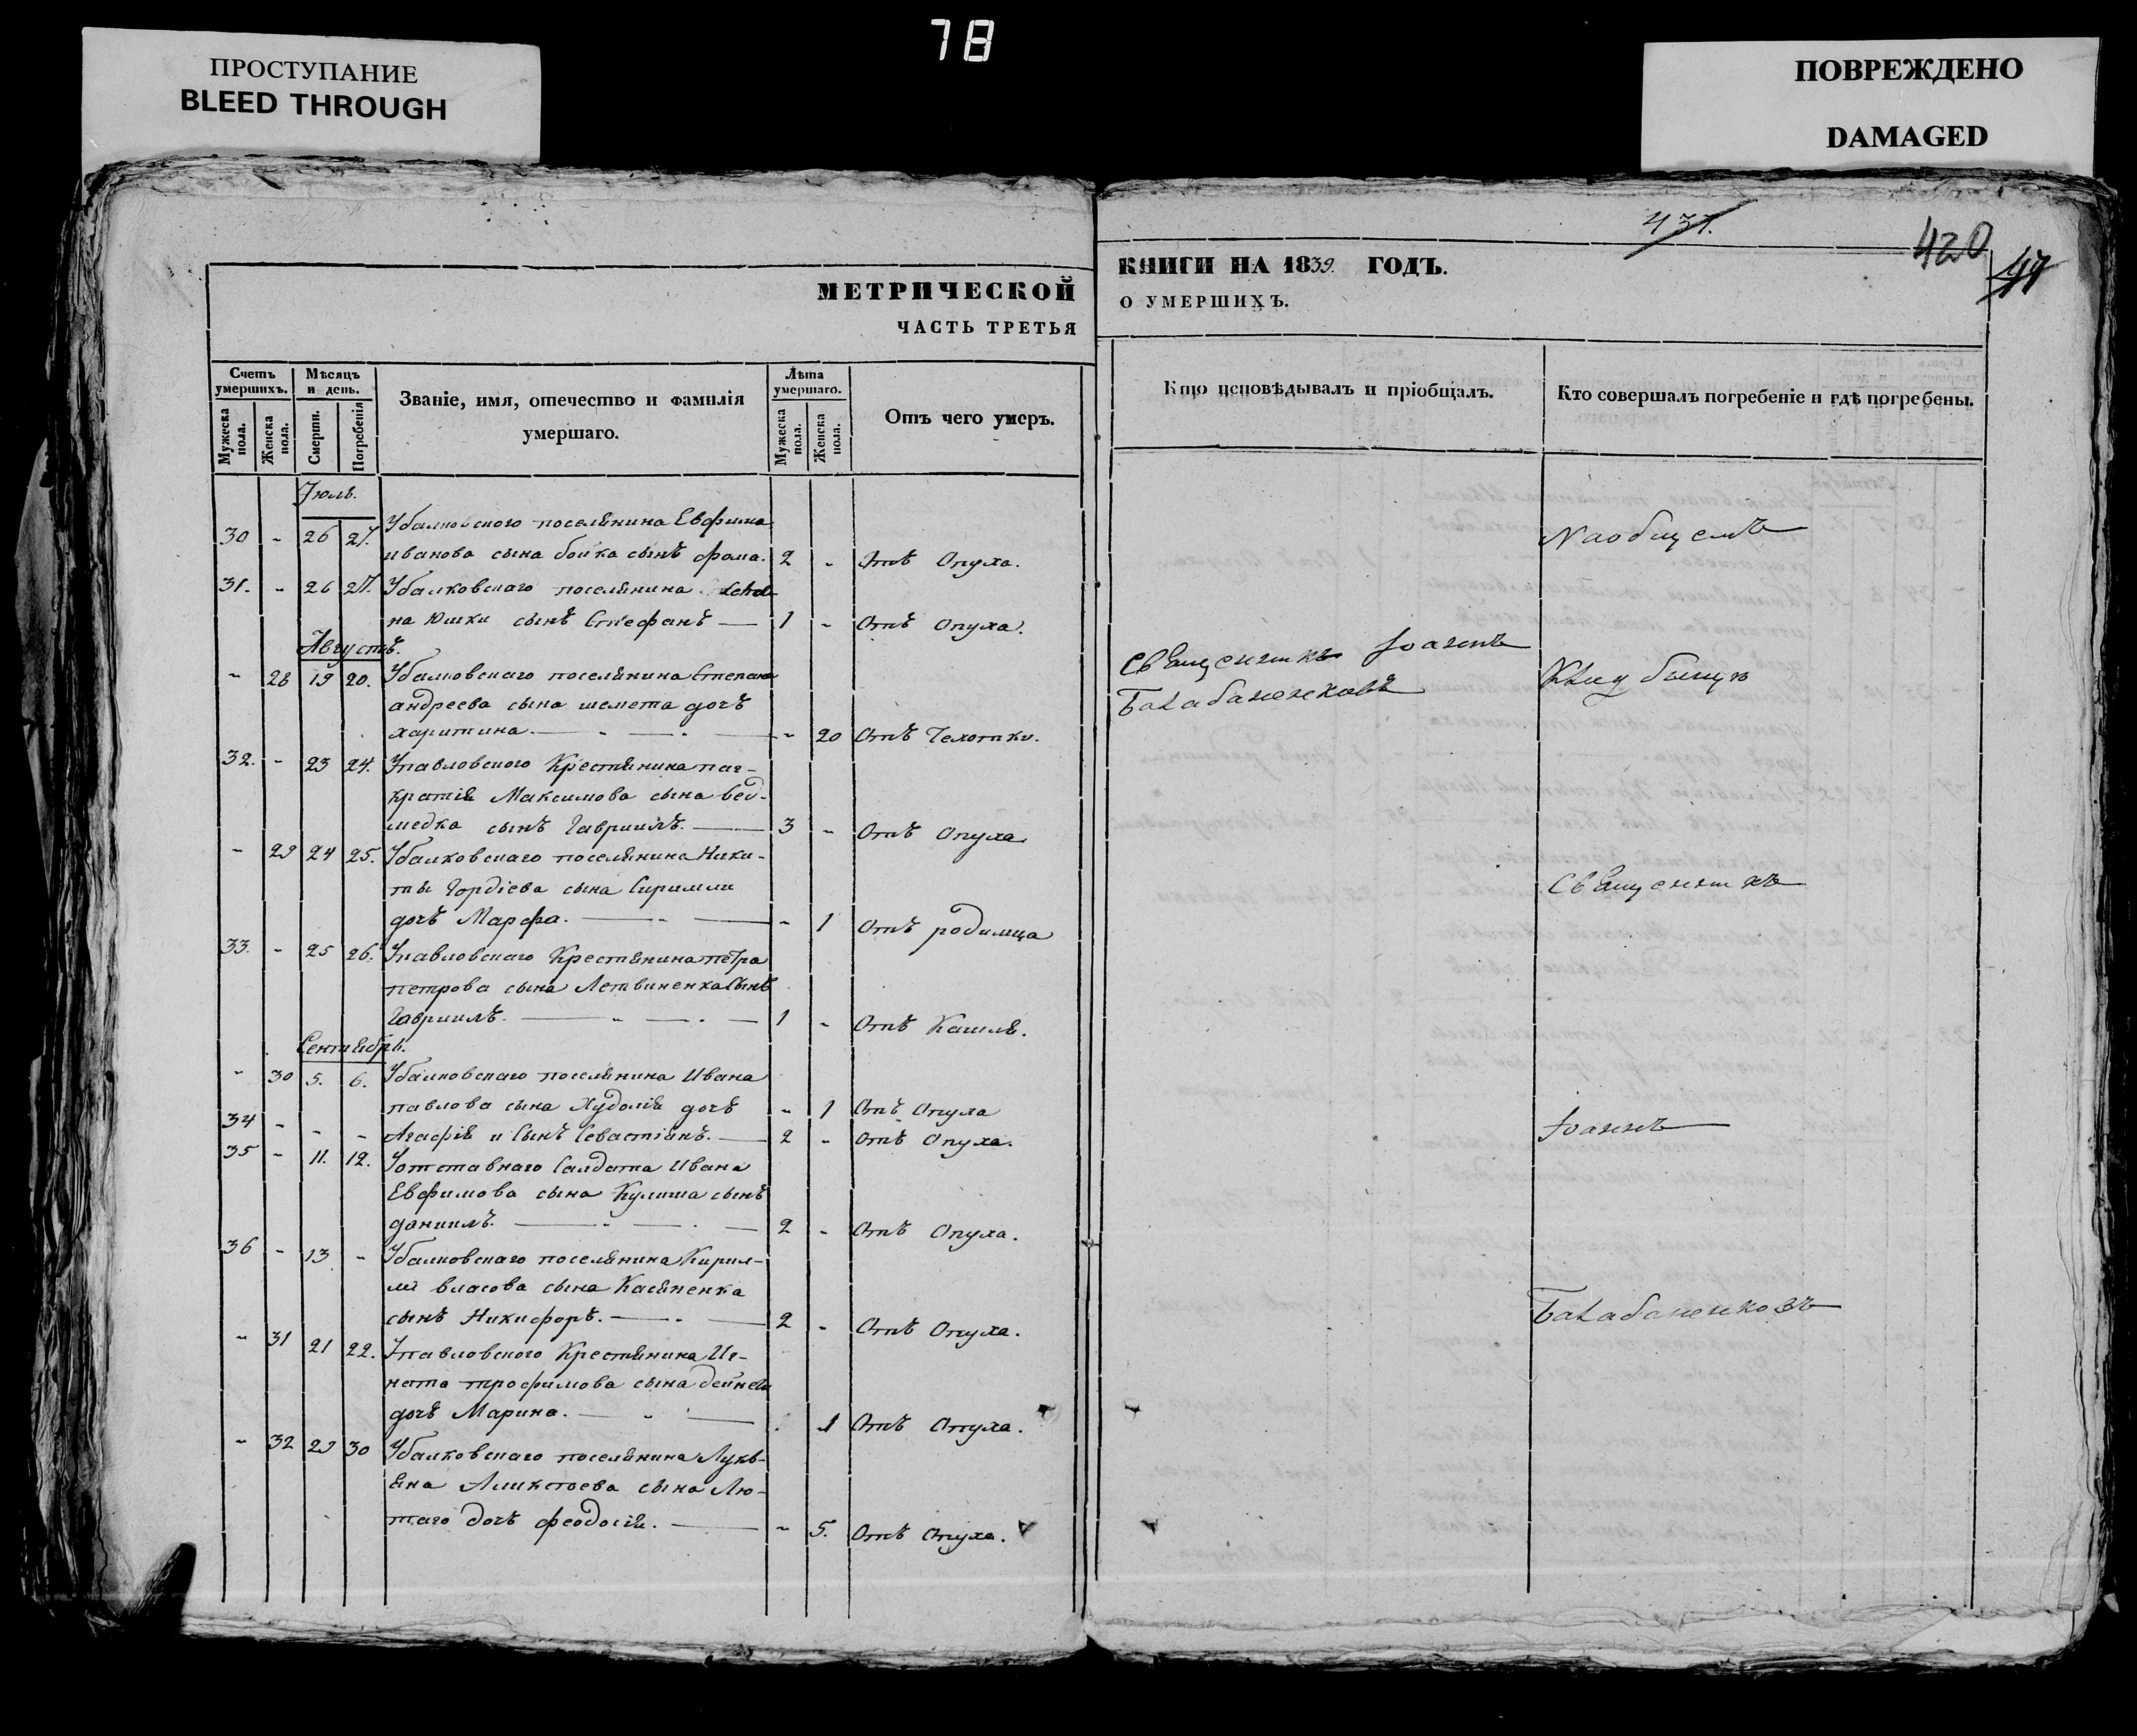 78
ПРОСТУПАНИЕ
BLEED THROUGH
ПОВРЕЖДЕНО
DAMAGED
437.
420
МЕТРИЧЕСКОЙ
ЧАСТЬ ТРЕТЬЯ
КНИГИ НА 1839. ГОДЪ.
О УМЕРШИХЪ.
Счетъ умершихъ.
Мужеска пола.
Женска пола.
Мѣсяцъ и день.
Смерти.
Погребенія
Званіе, имя, отечество и фамилія умершаго.
Лѣта умершаго.
Мужеска пола.
Женска пола.
Отъ чего умеръ.
Кто исповѣдывалъ и пріобщалъ.
Кто совершалъ погребеніе и гдѣ погребены.
Іюль.
30 - 26 27. Убалковского поселянина Евфима
иванова сына бойка сынъ фома. 2 - Отъ Опуха.
31. - 26 27. Убалковскаго поселянина
на Юшки сынъ Стефанъ — 1 - Отъ Опуха.
Августъ.
- 28 19 20. Убалковскаго поселянина Степана
андреева сына шемета дочь
харитина. — - 20 Отъ Чехотки.
32. - 23 24. Упавловского Крестянина пан-
кратія Максимова сына вед-
медка сынъ Гавриилъ. — 3 - Отъ Опуха
- 29 24 25. Убалковскаго поселянина Ники-
ты Гордіева сына
дочь Марфа. — - 1 Отъ родимца
33. - 25 26. Упавловскаго Крестянина петра
петрова сына Летвиненка Сынъ
Гавриилъ. — 1 - Отъ Кашля.
Сентябрь.
- 30 5. 6. Убалковскаго поселянина Ивана
павлова сына Худолія дочь - 1 Отъ Опуха
34 - - - Агафія и Сынъ Севастіянъ. — 2 - Отъ Опуха.
35 - 11. 12. Уотставнаго Салдата Ивана
Евфимова сына Кулиша сынъ
даниилъ. — 2 - Отъ Опуха.
36 - 13 - Убалковскаго поселянина Кирил-
ла власова сына Касяненка
сынъ Никифоръ. — 2 - Отъ Опуха.
- 31 21 22. Упавловского Крестянина Иг-
ната трофимова сына
дочь Марина. — 1 Отъ Опуха.
- 32 29 30 Убалковскаго поселянина Лукь-
яна сына Лю-
таго дочь феодосія. — - 5. Отъ Опуха.
Священникъ Іоаннъ
Балабаненковъ
На общемъ
кладбищѣ
Священникъ
Іоаннъ
Балабаненковъ